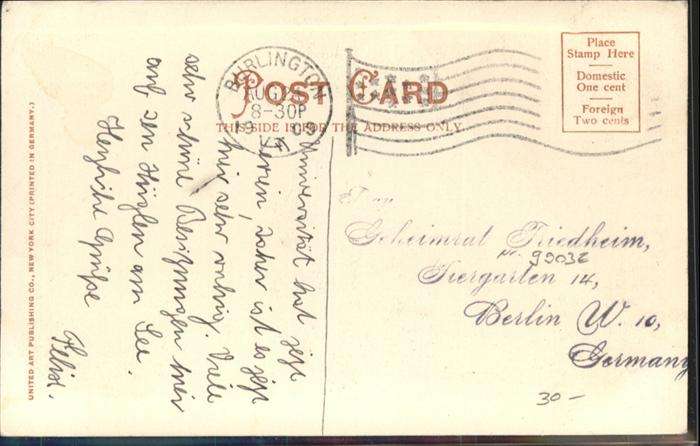 POST CARD
THIS SIDE IS FOR THE ADDRESS ONLY
Place
Stamp Here
Domestic
One cent
Foreign
Two cents
BURLINGTON
AUG
8-30P
1909
VT.
UNITED ART PUBLISHING CO., NEW YORK CITY (PRINTED IN GERMANY.)
Universität hat jetzt
Ferien, daher ist es jetzt
hier sehr ruhig. Viele
sehr schöne Besitzungen hier
auf den Hügeln am See.
Herzliche Grüße
Felix.
Geheimrat Friedheim,
Nr. 99036
Tiergarten 14,
Berlin W. 10,
Germany
30-